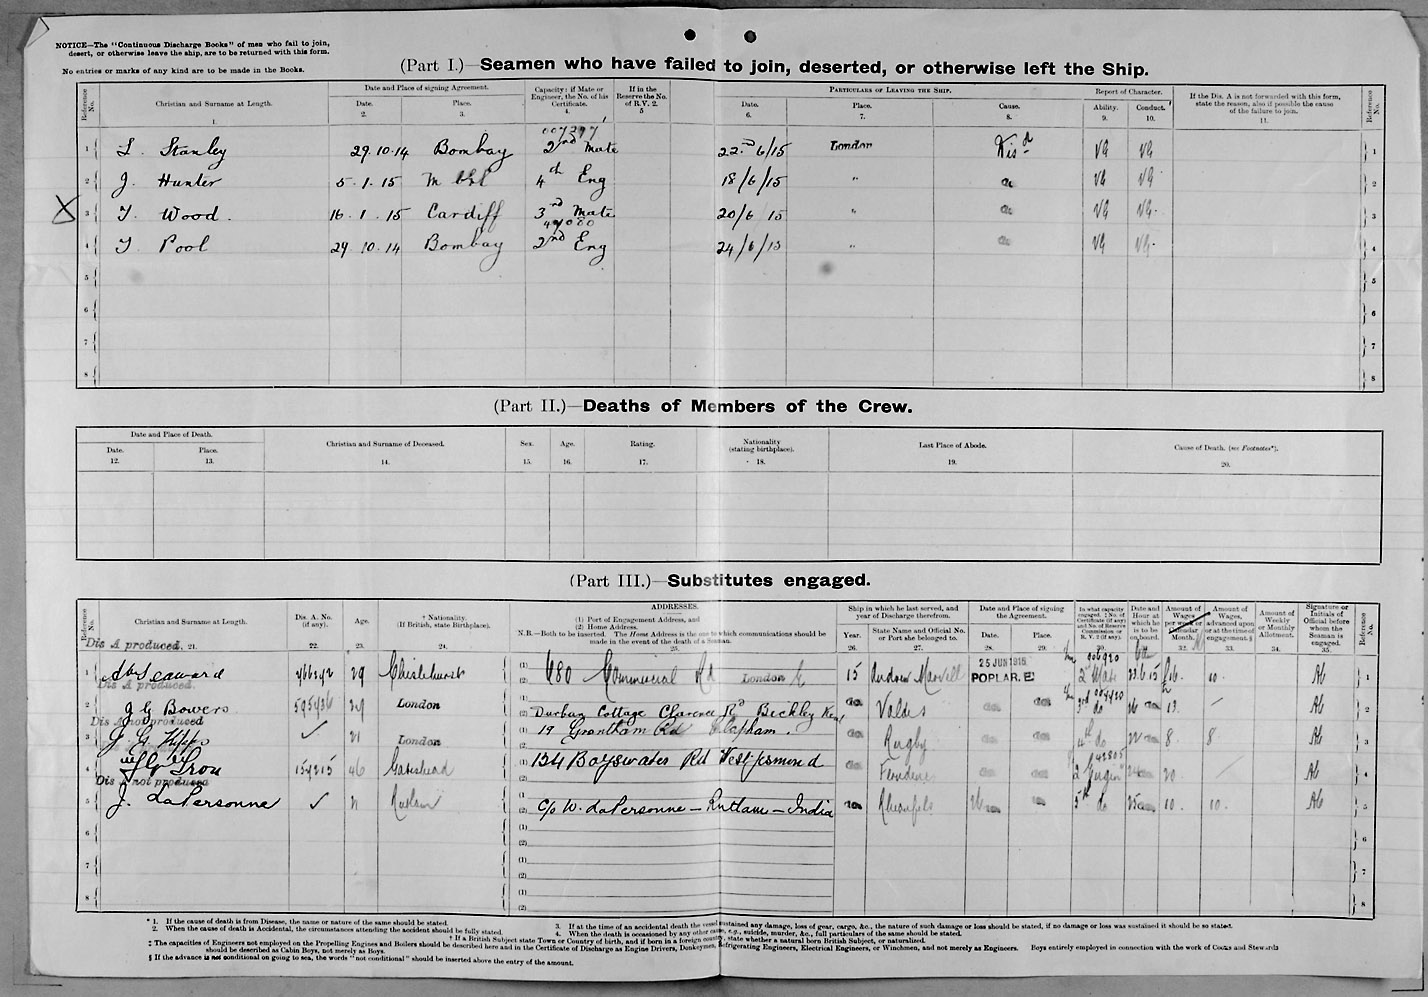 NOTICE—The "Continuous Discharge Books" of men who fail to join,
desert, or otherwise leave the ship, are to be returned with this form.
No entries or marks of any kind are to be made in the Books.
(Part I.)—Seamen who have failed to join, deserted, or otherwise left the Ship.
Reference No. Christian and Surname at Length. 1. Date and Place of signing Agreement. Date. 2. Place. 3. Capacity: if Mate or Engineer, the No. of his Certificate. 4. If in the Reserve the No. of R.V. 2. 5 Particulars of Leaving the Ship. Date. 6. Place. 7. Cause. 8. Report of Character. Ability. 9. Conduct. 10. If the Dis. A is not forwarded with this form, state the reason, also if possible the cause of the failure to join. 11. Reference No.
1 Stanley 29.10.14 Bombay 2nd Mate 22nd 6/15 London Disd VG VG 1
2 J. Hunter 5.1.15 4th Eng 18/6/15 " do VG VG 2
X 3 T. Wood. 16.1.15 Cardiff 3rd Mate 20/6 15 " do VG VG. 3
4 T. Pool 29.10.14 Bombay 2nd Eng 24/6/15 " do VG VG. 4
5 5
6 6
7 7
8 8
(Part II.)—Deaths of Members of the Crew.
Date and Place of Death. Date. 12. Place. 13. Christian and Surname of Deceased. 14. Sex. 15. Age. 16. Rating. 17. Nationality (stating birthplace). 18. Last Place of Abode. 19. Cause of Death. (see Footnotes*). 20.
(Part III.)—Substitutes engaged.
Reference No. Christian and Surname at Length. 21. Dis. A. No. (if any). 22. Age. 23. † Nationality. (If British, state Birthplace). 24. ADDRESSES. (1) Port of Engagement Address, and (2) Home Address. N.B.—Both to be inserted. The Home Address is the one to which communications should be made in the event of the death of a Seaman. 25. Ship in which he last served, and year of Discharge therefrom. Year. 26. State Name and Official No. or Port she belonged to. 27. Date and Place of signing the Agreement. Date. 28. Place. 29. In what capacity engaged, ‡ No. of Certificate (if any) and No. of Reserve Commission or R.V. 2 (if any). 30. Date and Hour at which he is to be on board. Amount of Wages per week or Calendar Month. 32. Amount of Wages, advanced upon or at the time of engagement.§ 33. Amount of Weekly or Monthly Allotment. 34. Signature or Initials of Official before whom the Seaman is engaged. 35. Reference No.
Dis A produced.
1 Seaward 29 Chislehurst (1) (2) 680 Commercial Rd London E 15 Andrew Marvell 25 JUN 1915 POPLAR. E. 2nd Mate 16. 10. 1
Dis A produced.
2 J G Bowers 595436 29 London (2) Durban Cottage Clarence Rd Beckley Kent do do do 3rd do 13. — 2
Dis A not produced
3 ✓ 21 London 19 Grantham Rd Clapham. do Rugby do do 4th do 8 8 3
4 46 Gateshead (1) 134 Bayswater Rd West Jesmond do do do 2 20 — 4
Dis A not produced
5 J. LaPersonne ✓ 21 (1) (2) c/o W. LaPersonne — Rutlam — India do do do 5th do 10. 10. 5
6 (1) (2) 6
7 (1) (2) 7
8 (1) (2) 8
* 1. If the cause of death is from Disease, the name or nature of the same should be stated.
2. When the cause of death is Accidental, the circumstances attending the accident should be fully stated.
3. If at the time of an accidental death the vessel sustained any damage, loss of gear, cargo, &c., the nature of such damage or loss should be stated, if no damage or loss was sustained it should be so stated.
4. When the death is occasioned by any other cause, e.g., suicide, murder, &c., full particulars of the same should be stated.
† If a British Subject state Town or Country of birth, and if born in a foreign country, state whether a natural born British Subject, or naturalized.
‡ The capacities of Engineers not employed on the Propelling Engines and Boilers should be described here and in the Certificate of Discharge as Engine Drivers, Donkeymen, Refrigerating Engineers, Electrical Engineers, or Winchmen, and not merely as Engineers. Boys entirely employed in connection with the work of Cooks and Stewards
should be described as Cabin Boys, not merely as Boys.
§ If the advance is not conditional on going to sea, the words "not conditional" should be inserted above the entry of the amount.